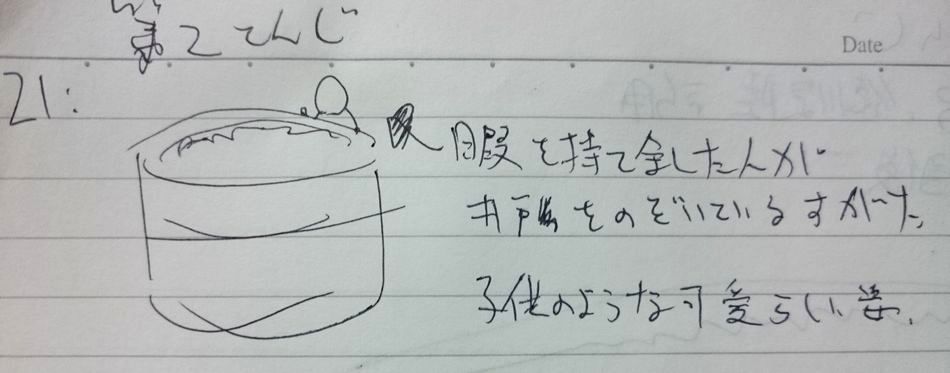 てんじ
Date
21:
暇を持て余したんが
井戸をのぞいているすがた。
子供のような可愛らしい姿.